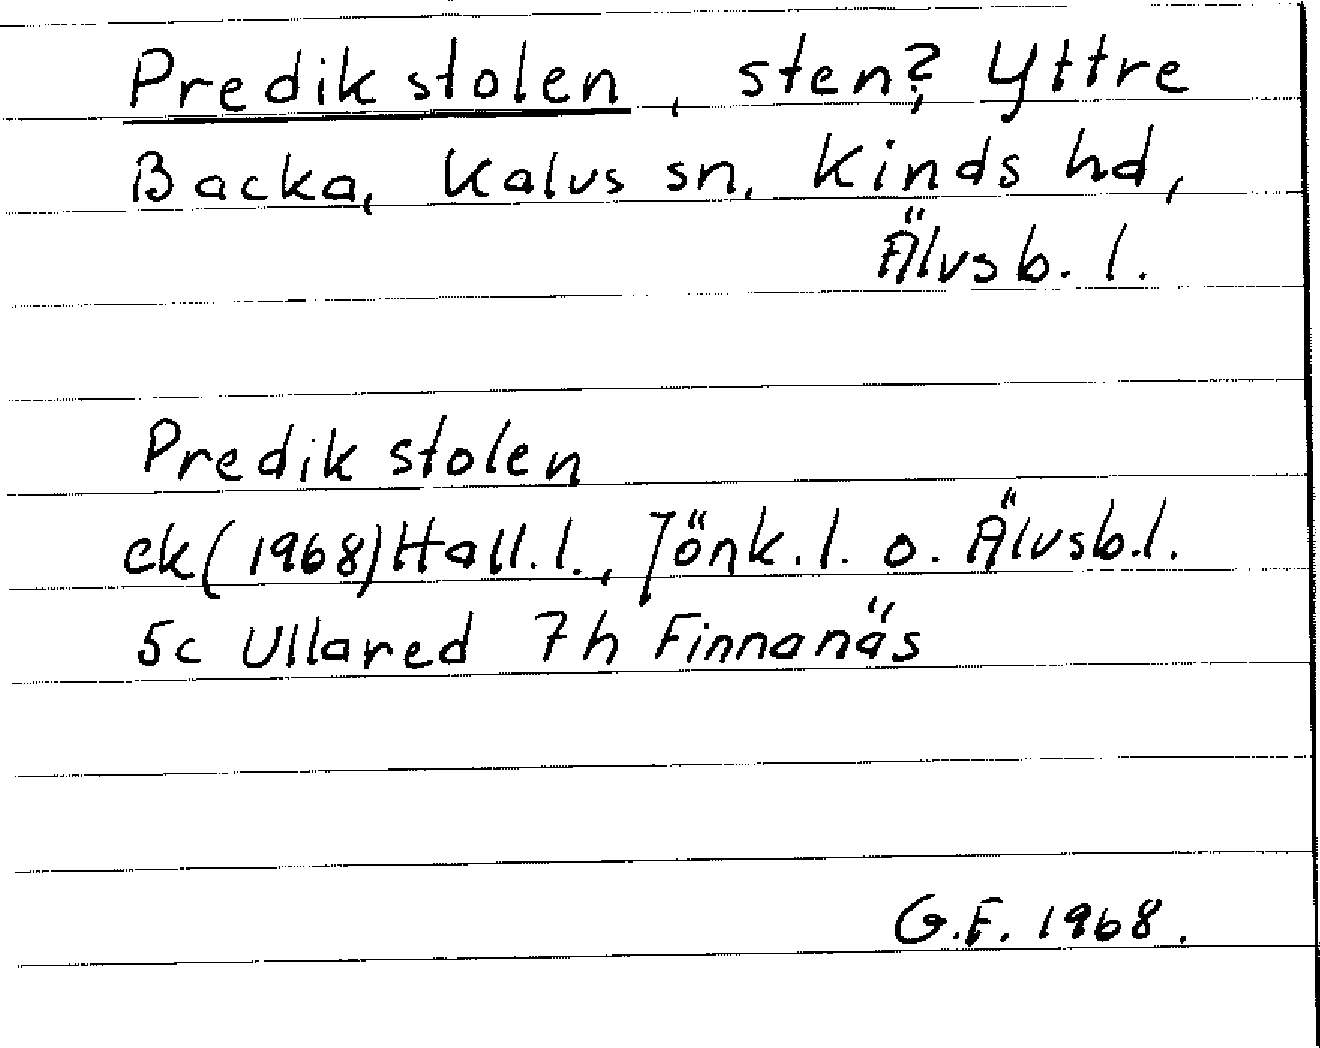 Predikstolen, sten? Yttre
Backa, Kalvs sn. Kinds hd,
Älvsb. l.
Predikstolen
ek (1968) Hall. l., Jönk. l. o. Älvsb. l.
5c Ullared 7h Finnanäs
G.F. 1968.